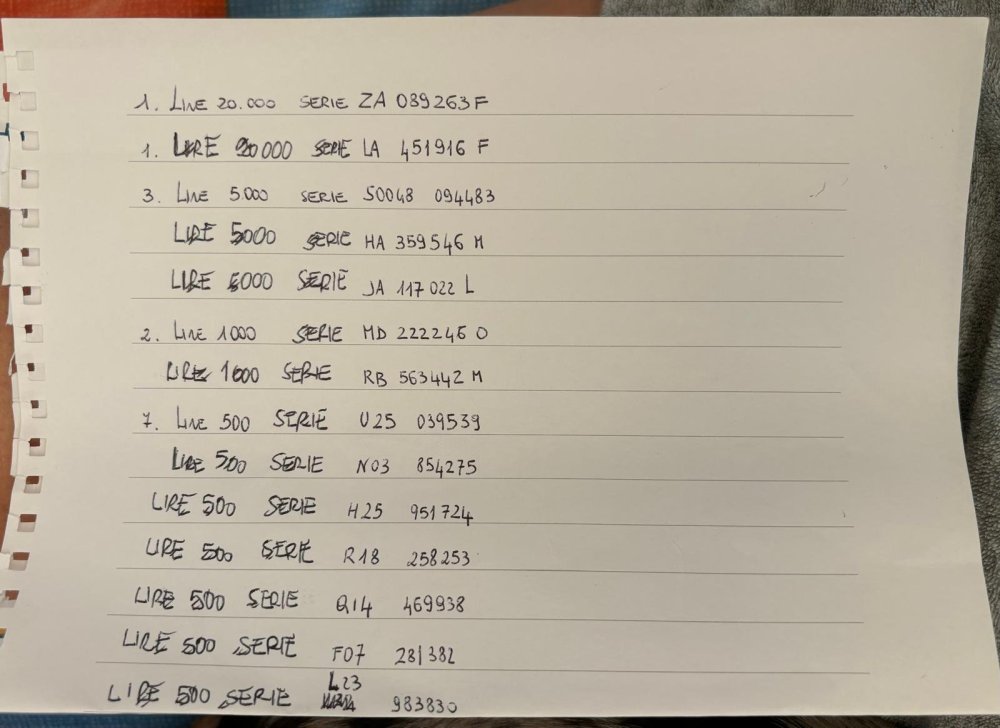 1. LIRE 20.000 SERIE ZA 089263F
1. LIRE 20000 SERIE LA 451916 F
3. LIRE 5.000 SERIE S0048 094483
LIRE 5000 SERIE HA 359546 M
LIRE 5000 SERIE JA 117022 L
2. LIRE 1000 SERIE MD 222246 O
LIRE 1000 SERIE RB 563442 M
7. LIRE 500 SERIE U25 039539
LIRE 500 SERIE N03 854275
LIRE 500 SERIE H25 951724
LIRE 500 SERIE R18 258253
LIRE 500 SERIE Q14 469938
LIRE 500 SERIE F07 281382
LIRE 500 SERIE L23 983830